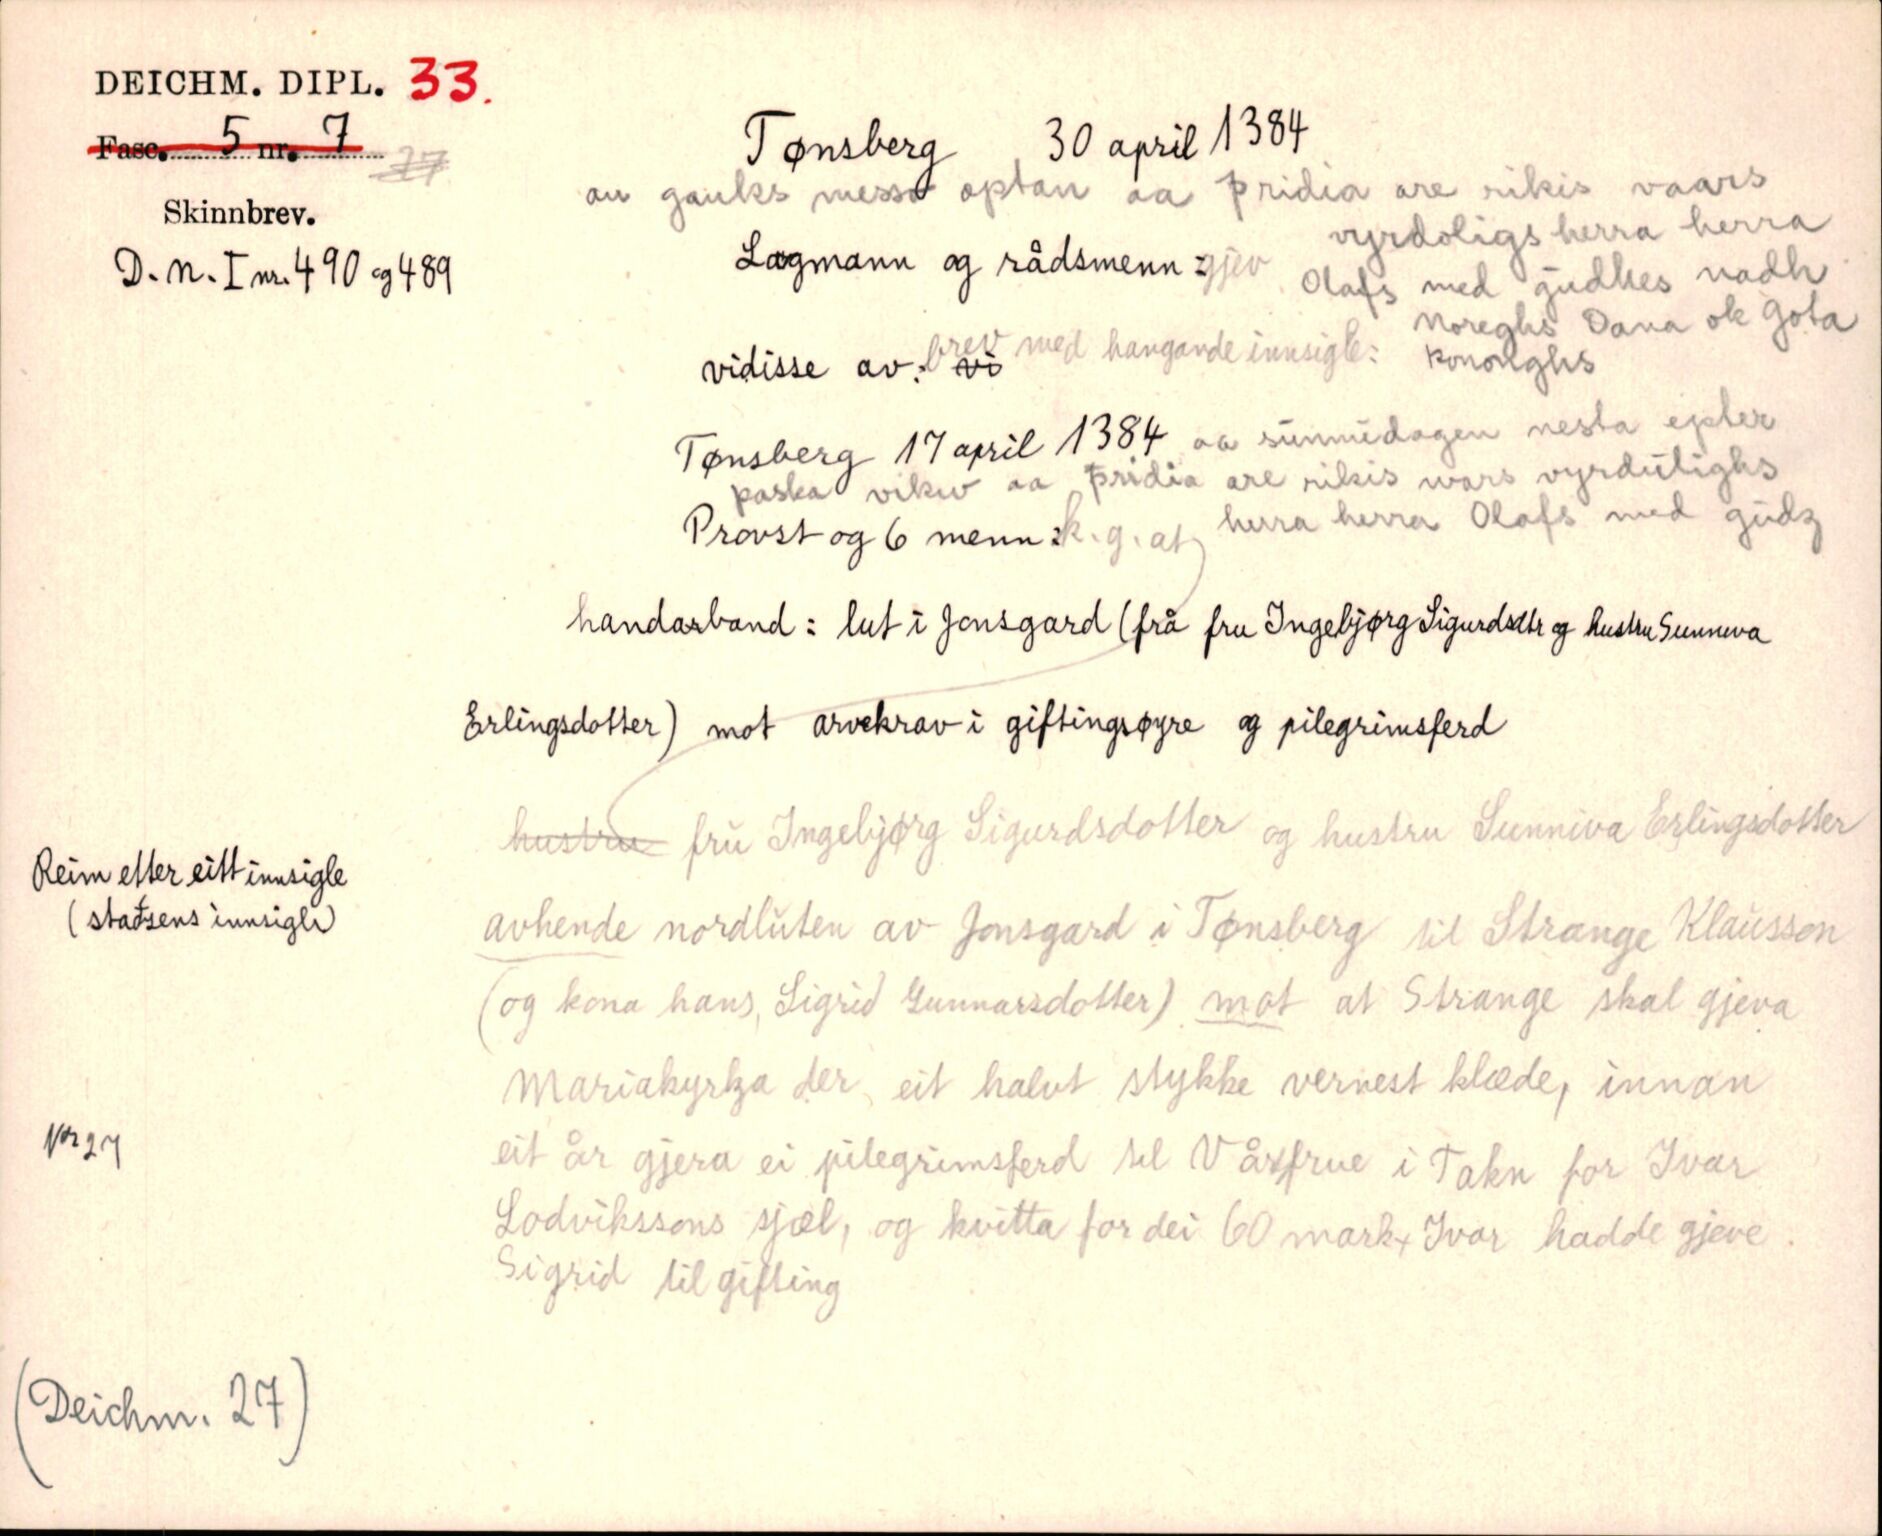 DEICHM. DIPL. 33.
Fasc. 5 nr. 7
27
Skinnbrev.
D. N. I nr. 490 og 489
Tønsberg 30 april 1384
gauks messo aptan aa þridia are rikis vaars
vyrdoligs herra herra
Lagmann og rådsmenn : gjev
Olafs med gudhes nadh
Noreghs Dana ok Gota
vidisse av: vi brev med hangande innsigle:
kononghs
Tønsberg 17 april 1384 aa sunnudagen nesta epter
paska viku aa þridia are rikis wars vyrdulighs
Provst og 6 menn : k. g. at herra herra Olafs med gudz
handarband : lut i Jonsgard (frå fru Ingebjørg Sigurdsdtr og hustru Sunneva
Erlingsdotter) mot arvekrav i giftingsøyre og pilegrimsferd
hustru fru Ingebjørg Sigurdsdotter og hustru Sunniva Erlingsdotter
Reim etter eitt innsigle
(statsens innsigle)
avhende nordluten av Jonsgard i Tønsberg til Strange Klausson
(og kona hans, Sigrid Gunnarsdotter) mot at Strange skal gjeva
Mariakyrkja der eit halvt stykke vernest klæde, innan
Nr 27
eit år gjera ei pilegrimsferd til Vårfrue i Takn for Ivar
Lodvikssons sjæl, og kvitta for dei 60 mark Ivar hadde gjeve
Sigrid til gifting
(Deichm. 27)